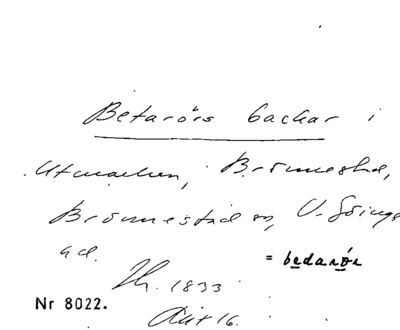 Betarörs backar i
Utmarken, Brönnestad,
Brönnestad sn, V. Göinge
hd.
= bedarör
Th. 1833
Akt 16.
Nr 8022.